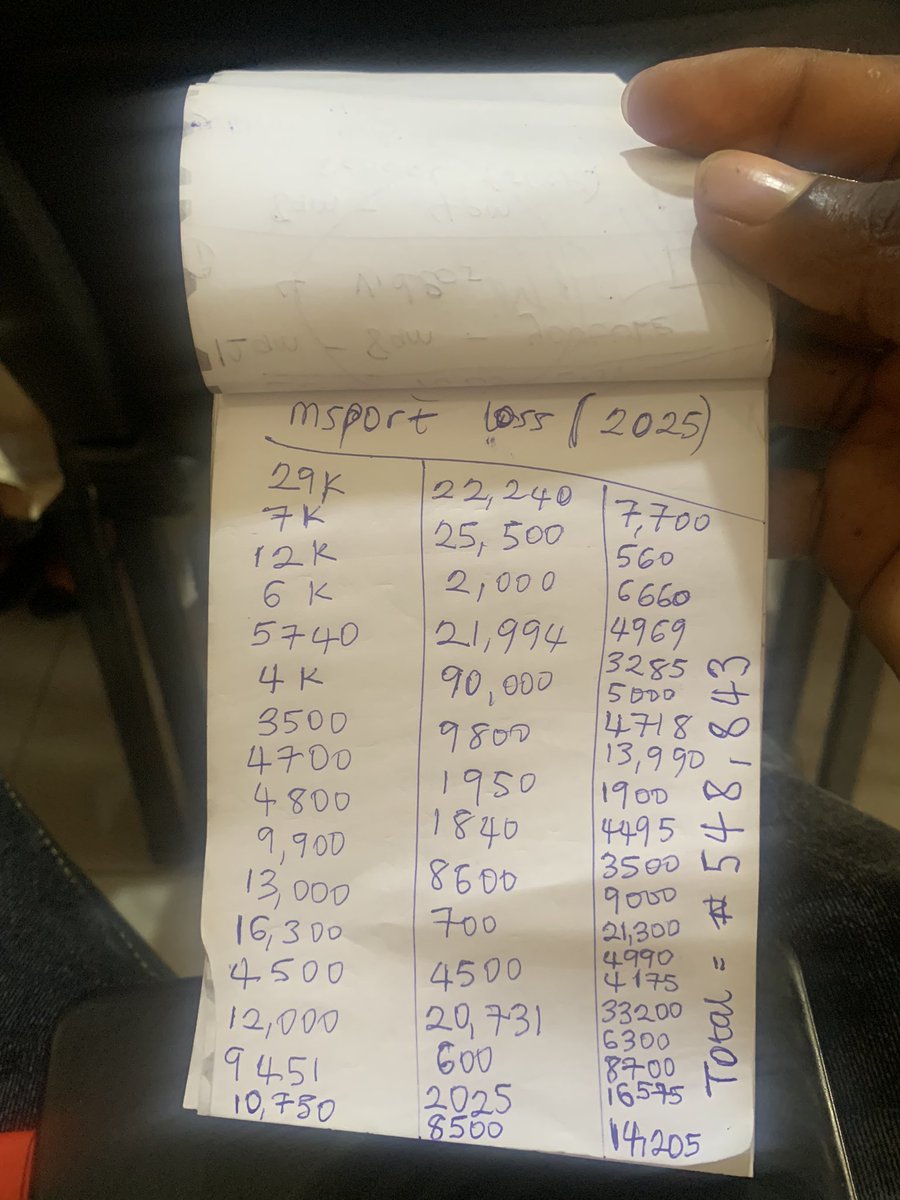 msport loss (2025)
29K
7K
12K
6 K
5740
4K
3500
4700
4800
9,900
13,000
16,300
4500
12,000
9451
10,750
22,240
25,500
2,000
21,994
90,000
9800
1950
1840
8600
700
4500
20,731
600
2025
8500
7,700
560
6660
4969
3285
5000
4718
13,990
1900
4495
3500
9000
21,300
4990
4175
33200
6300
8700
16575
14,205
Total = ₦548,843